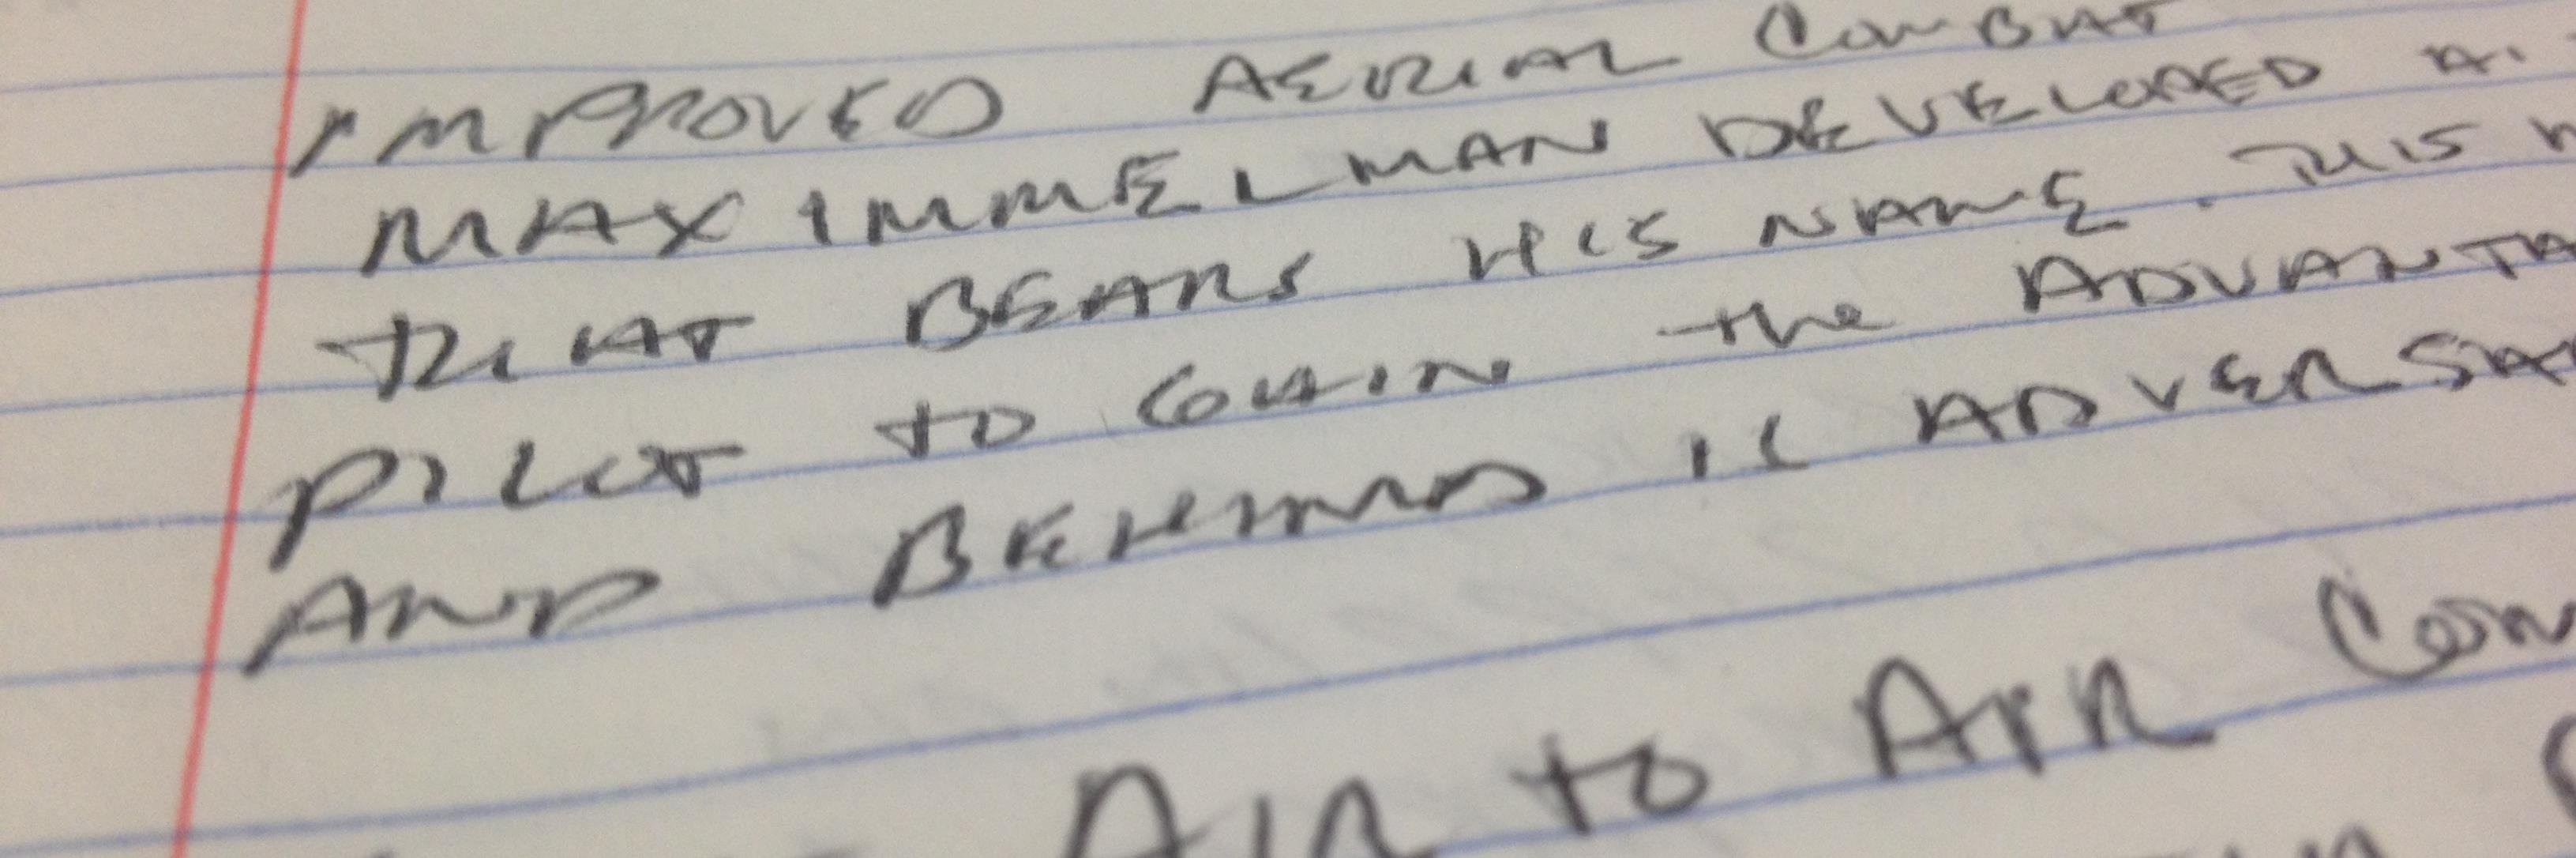 IMPROVED AERIAL COMBAT
MAX IMMELMAN DEVELOPED A
THAT BEARS HIS NAME. THIS
PILOT TO GAIN the ADVANTA
AND BEHIND IS ADVERSA
AIR to AIR Com